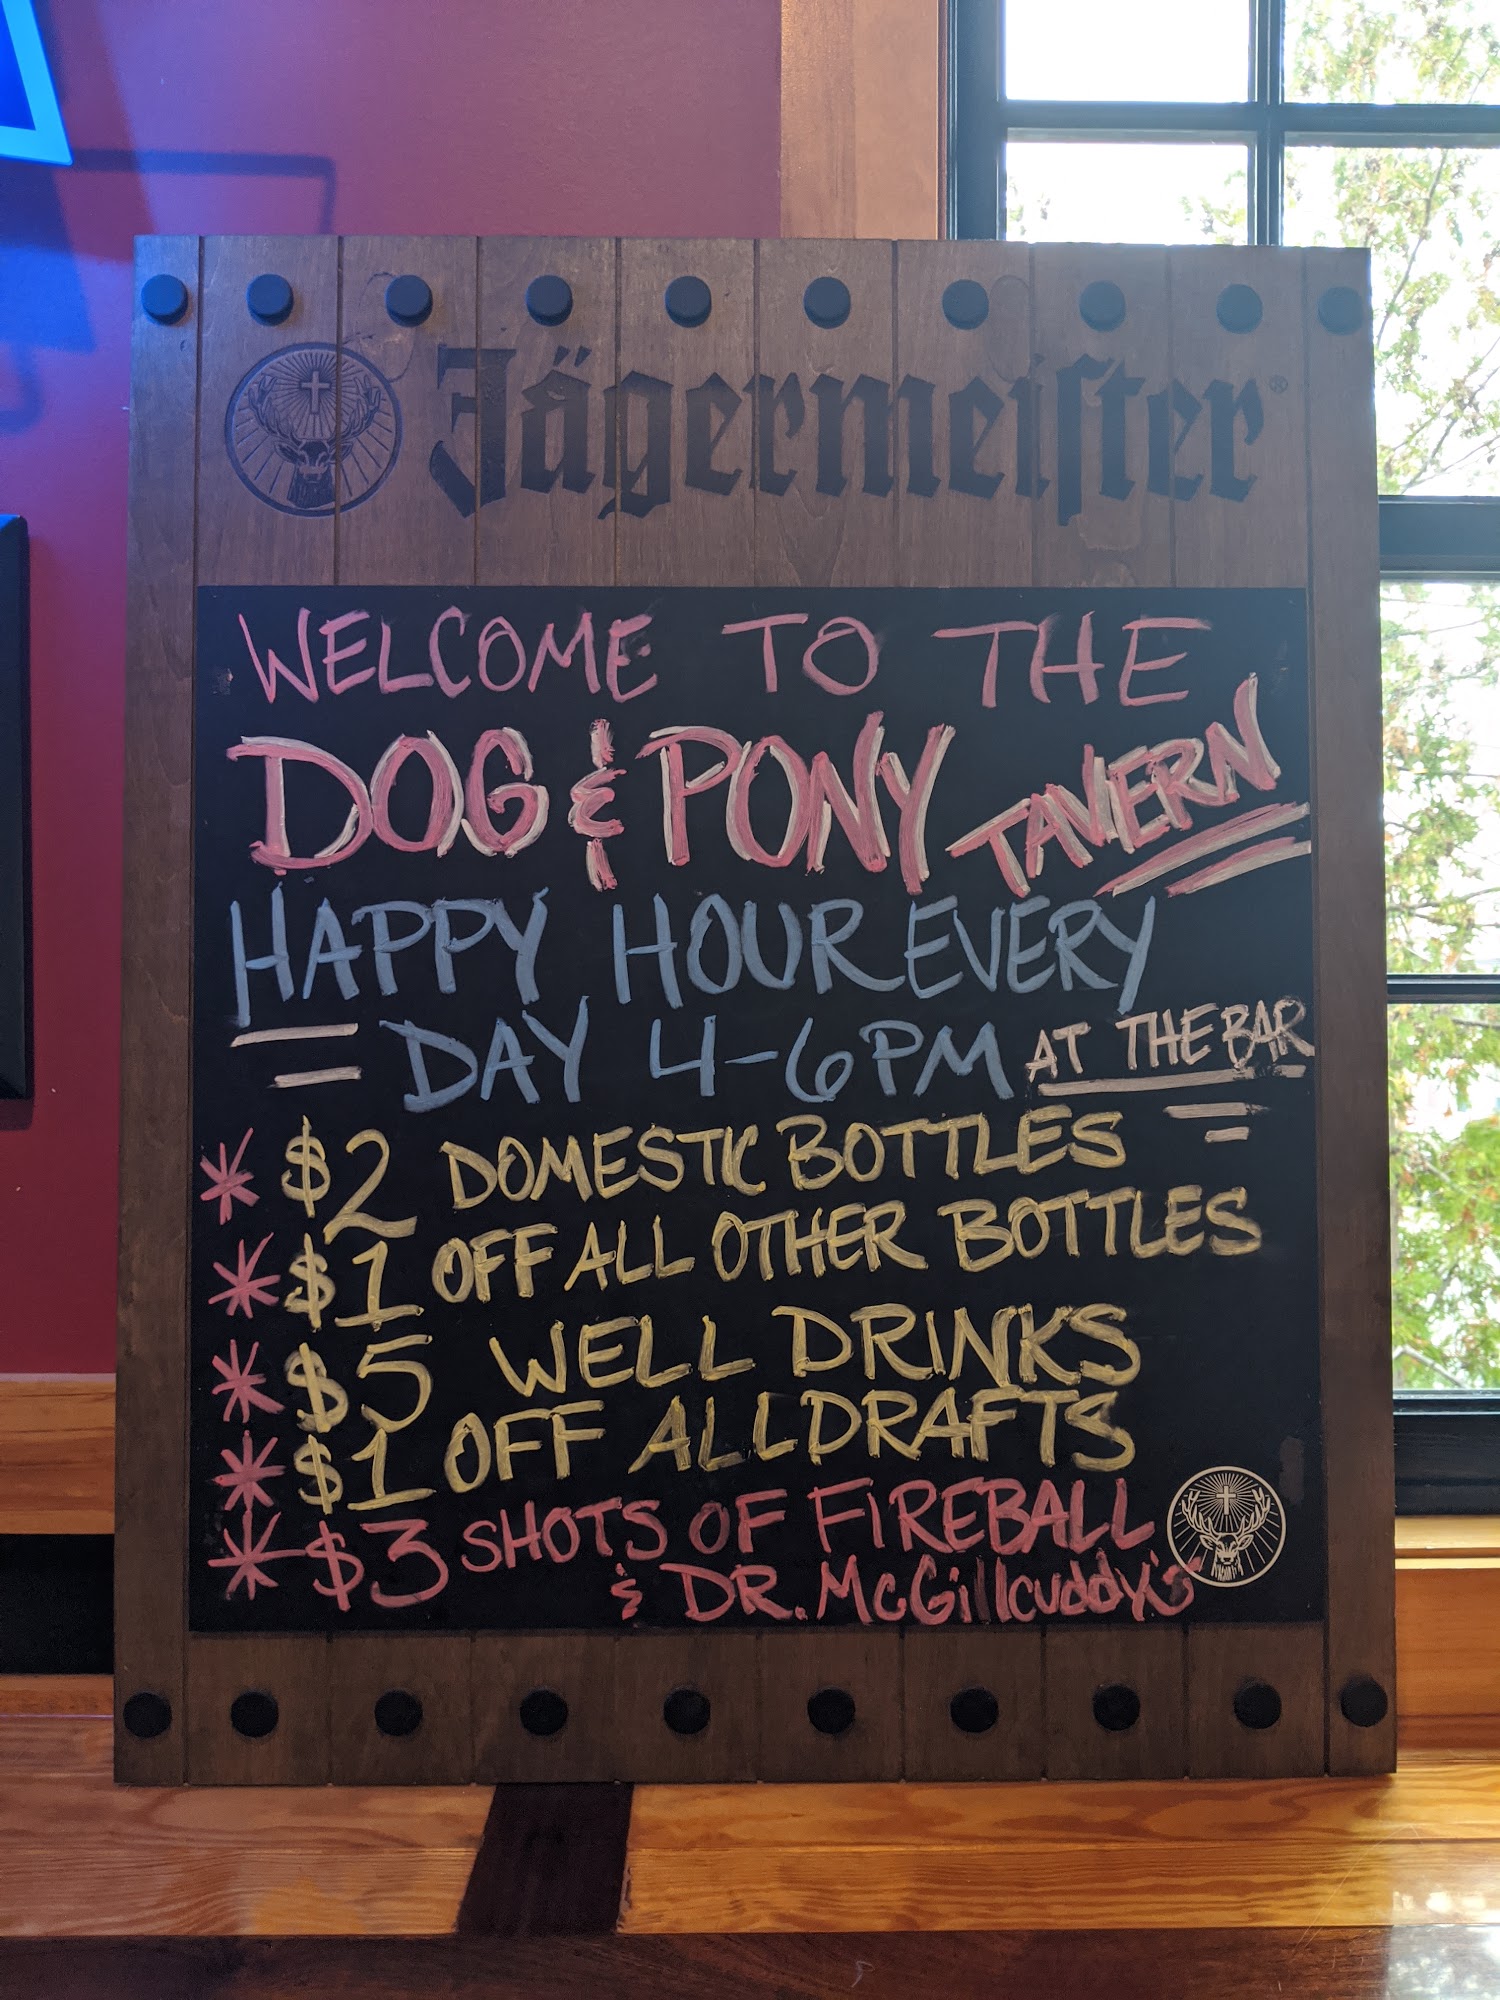 Jägermeister®
WELCOME TO THE
DOG & PONY TAVERN
HAPPY HOUR EVERY
DAY 4-6PM AT THE BAR
* $2 DOMESTIC BOTTLES
* $1 OFF ALL OTHER BOTTLES
* $5 WELL DRINKS
* $1 OFF ALL DRAFTS
* $3 SHOTS OF FIREBALL
& DR. McGillcuddy's